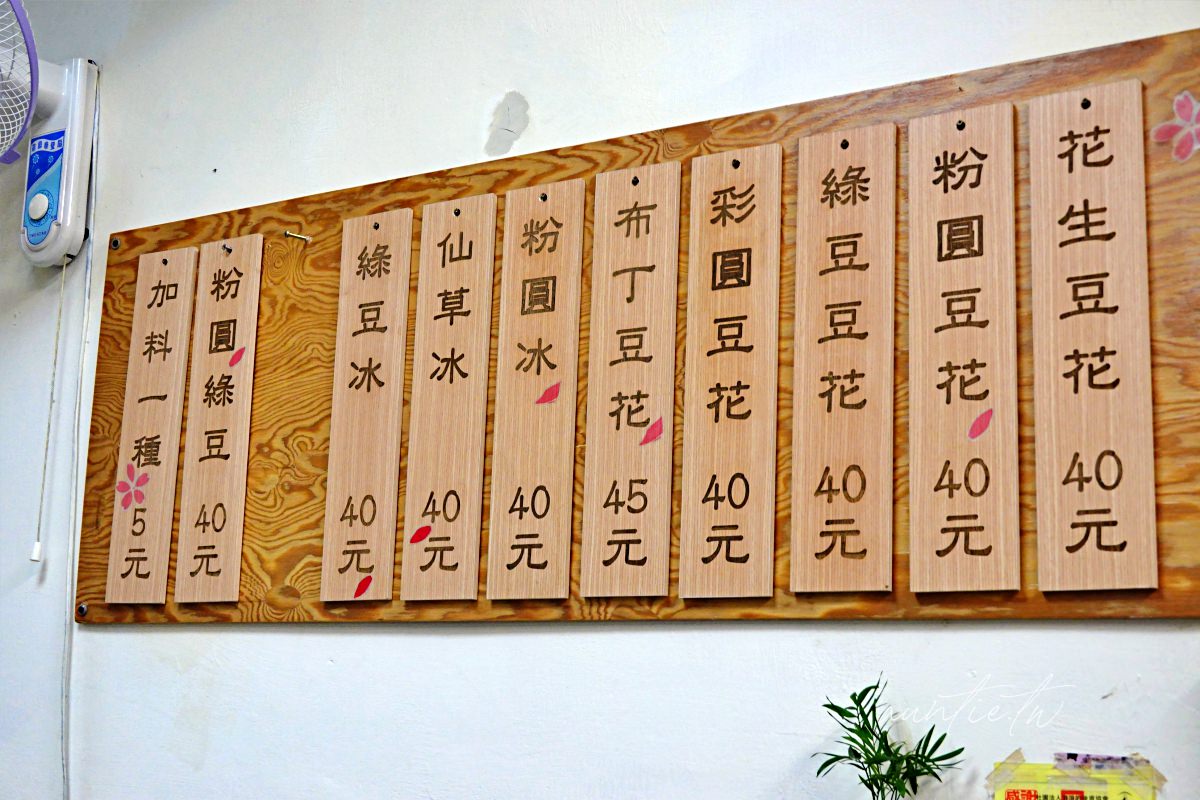 花生豆花 40元
粉圓豆花 40元
綠豆豆花 40元
彩圓豆花 40元
布丁豆花 45元
粉圓冰 40元
仙草冰 40元
綠豆冰 40元
粉圓綠豆 40元
加料一種 5元
auntie.tw
感謝